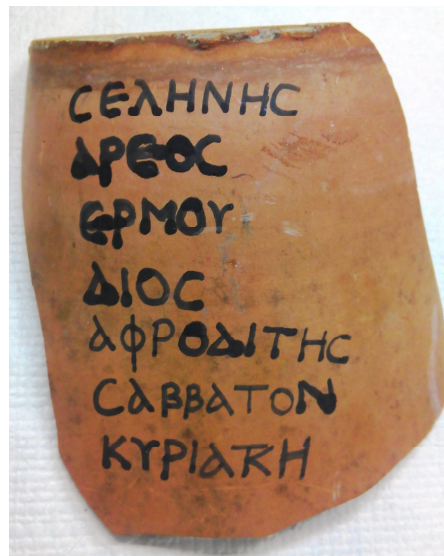 ϹΕΛΗΝΗϹ
ΑΡΕΟϹ
ΕΡΜΟΥ
ΔΙΟϹ
ΑΦΡΟΔΙΤΗϹ
ϹΑΒΒΑΤΟΝ
ΚΥΡΙΑΚΗ